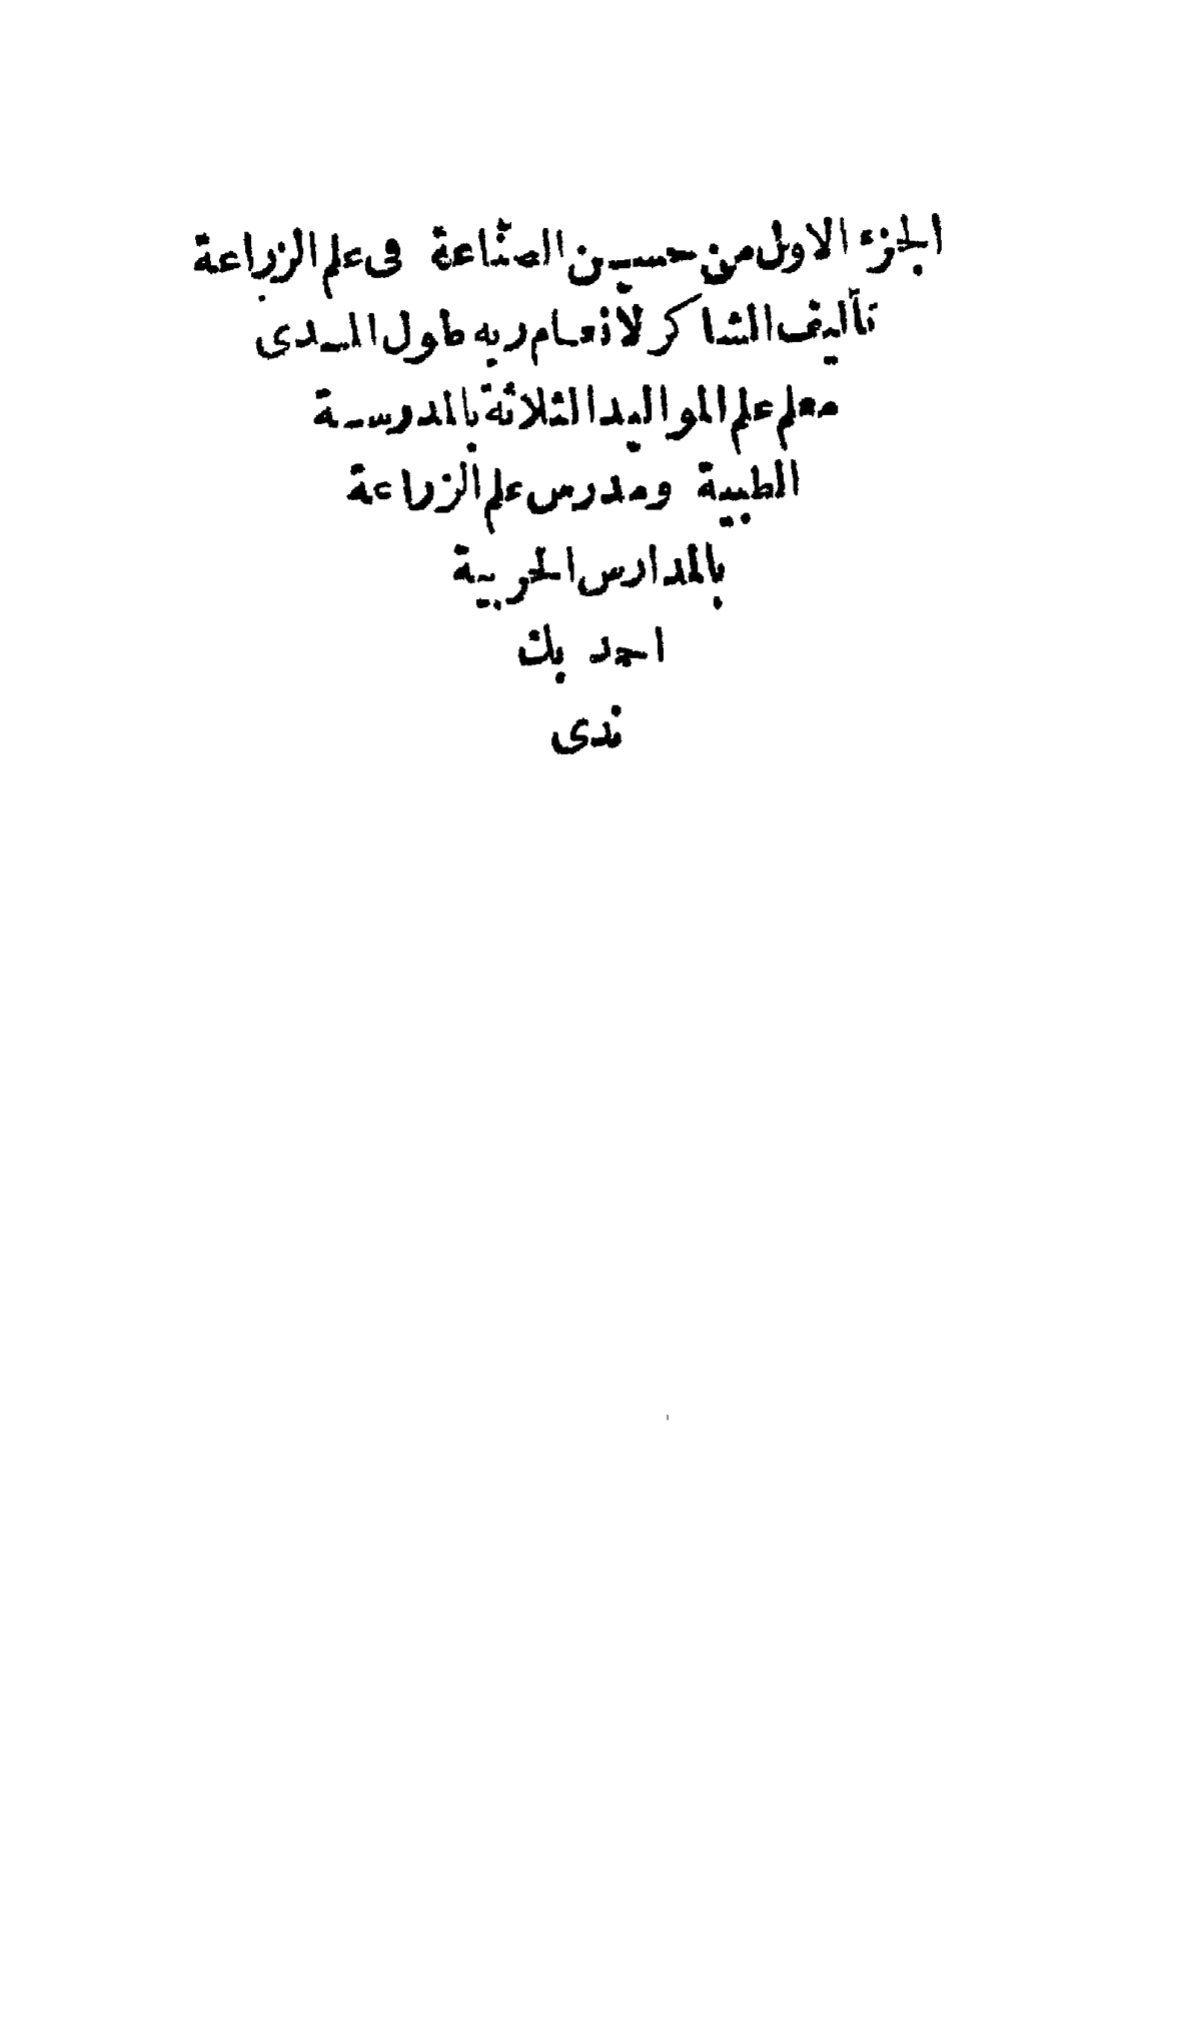 الجزء الاول من حسين الصناعة فى علم الزراعة
تأليف الشاكر لانعام ربه طول المدى
معلم علم المواليد الثلاثة بالمدرسة
الطبية ومدرس علم الزراعة
بالمدارس الحربية
احمد بك
ندى